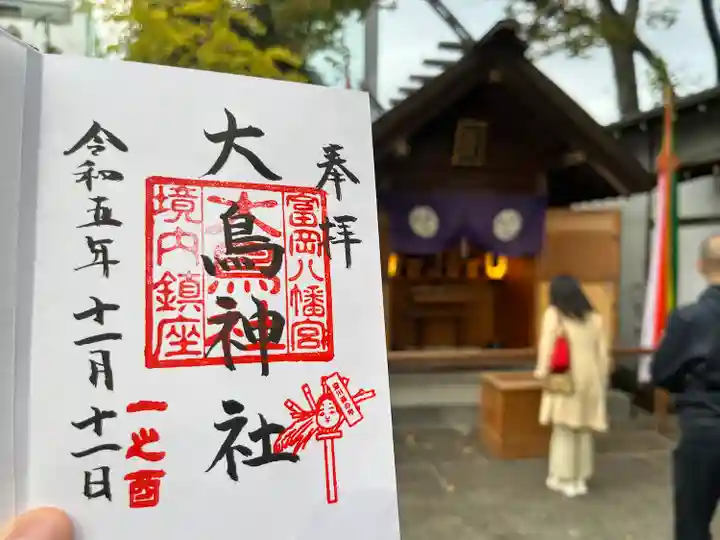 奉拝
大鳥神社
富岡八幡宮
境内鎮座
一之酉
令和五年十一月十一日